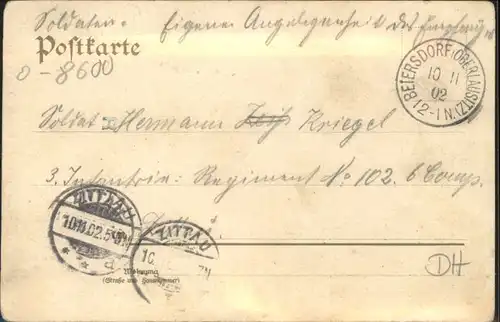 Soldaten. Eigene Angelegenheit des Empfängers
Postkarte
0-8600
BEIERSDORF (OBERLAUSITZ)
10 11
02
12-1 N.
Soldat Hermann Kriegel
3. Infanterie: Regiment No 102. 6 Comp.
ZITTAU
10.11.02.5-6N
ZITTAU
10.
DH
Wohnung
(Straße und Hausnummer)